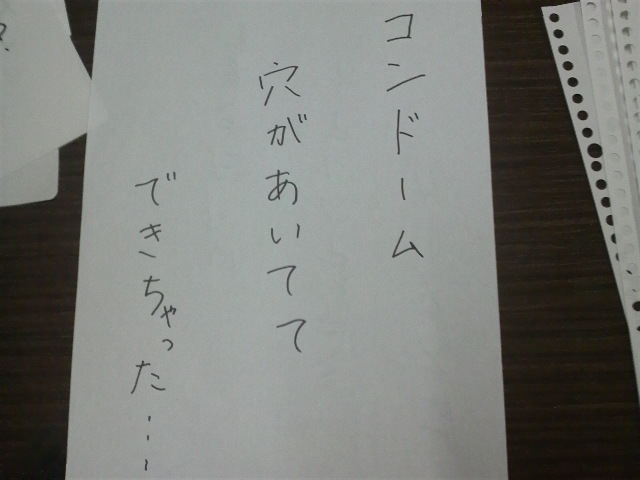 コンドーム
穴があいてて
できちゃった…